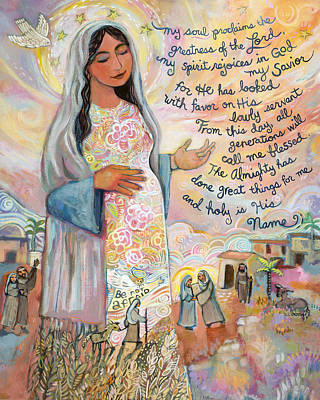 my soul proclaims the
greatness of the Lord,
my spirit rejoices in God
my Savior
for HE has looked
with favor on His
lowly servant
From this day all
generations will
call me blessed.
The Almighty has
done great things for me
and holy is His
Name
Be not
afraid